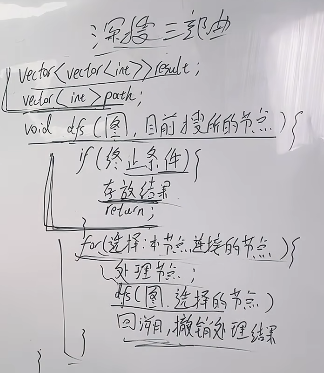 深搜三部曲
vector<vector<int>>result;
vector<int>path;
void dfs(图,目前搜所的节点){
if(终止条件){
存放结果
return;
}
for(选择:本节点连接的节点){
处理节点;
dfs(图,选择的节点)
回溯,撤销处理结果
}
}